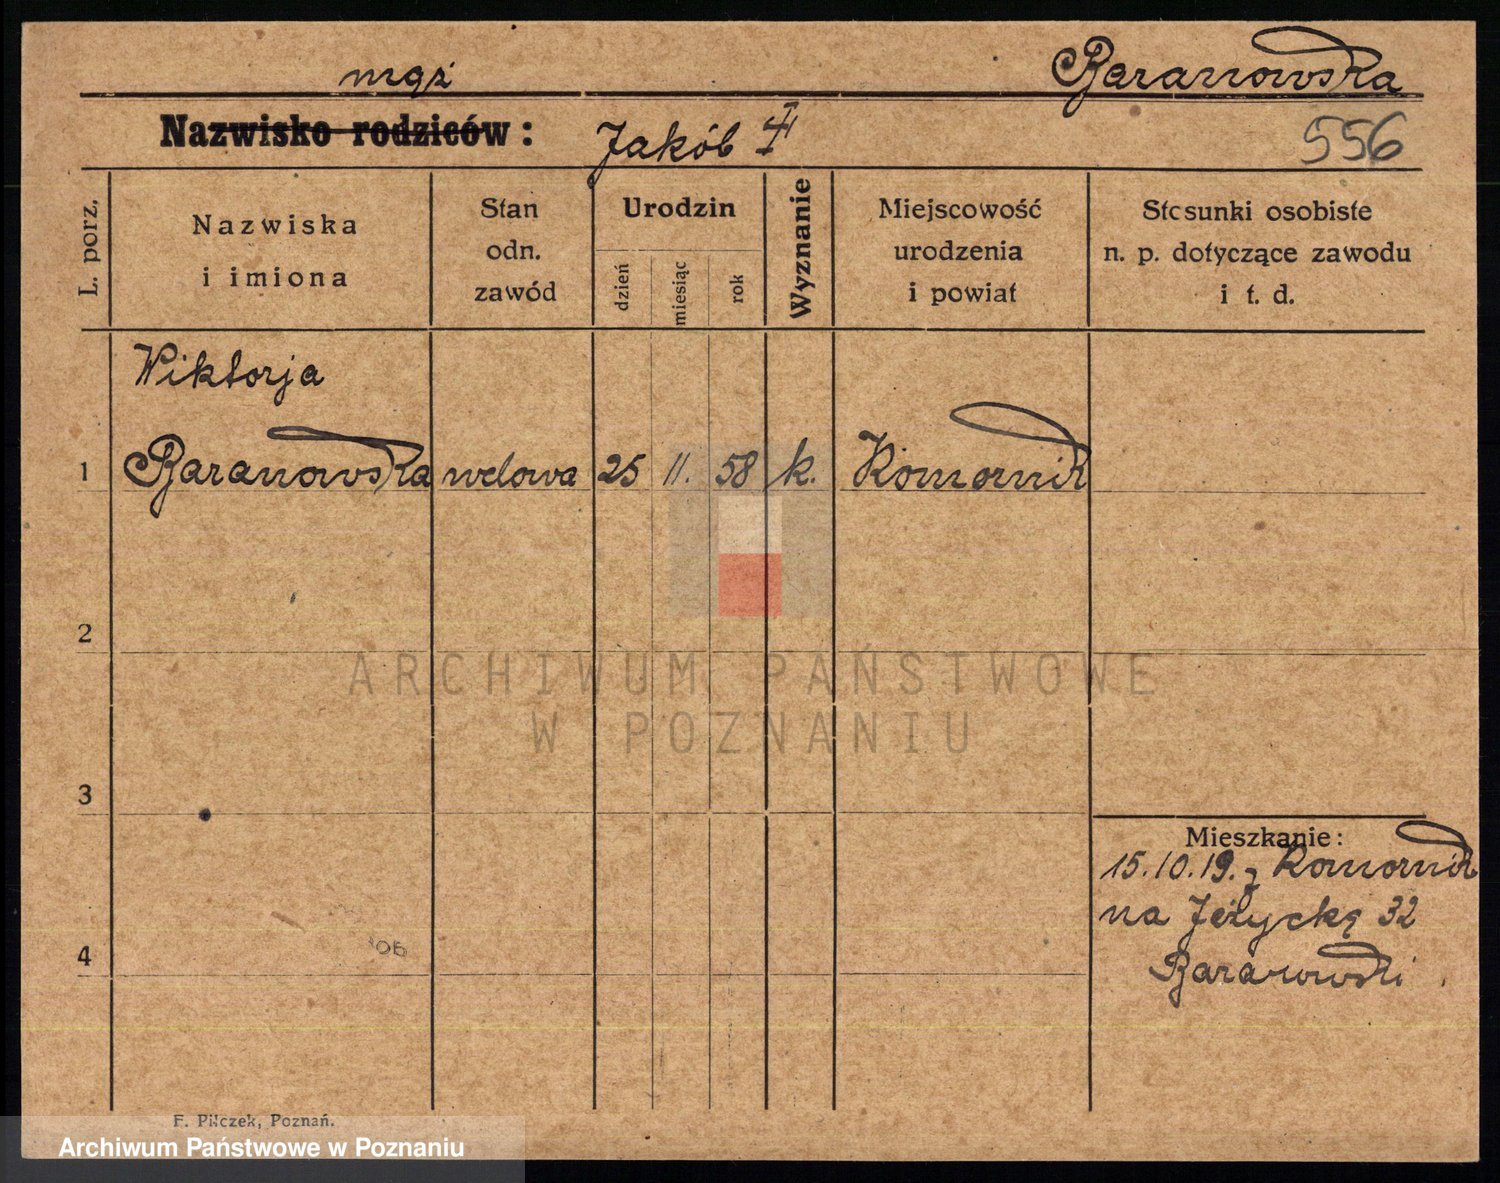 mąż
Baranowska
Nazwisko rodziców: Jakób
556
L. porz.
Nazwiska
i imiona
Stan
odn.
zawód
Urodzin
dzień
miesiąc
rok
Wyznanie
Miejscowość
urodzenia
i powiat
Stosunki osobiste
n. p. dotyczące zawodu
i t. d.
Wiktorja
1 Baranowska wdowa 25 11. 58 k. Komornik
2
3
4
Mieszkanie:
15.10.19. z Komornik
na Jeżycką 32
Baranowski
ARCHIWUM PAŃSTWOWE
W POZNANIU
F. Pilczek, Poznań.
Archiwum Państwowe w Poznaniu